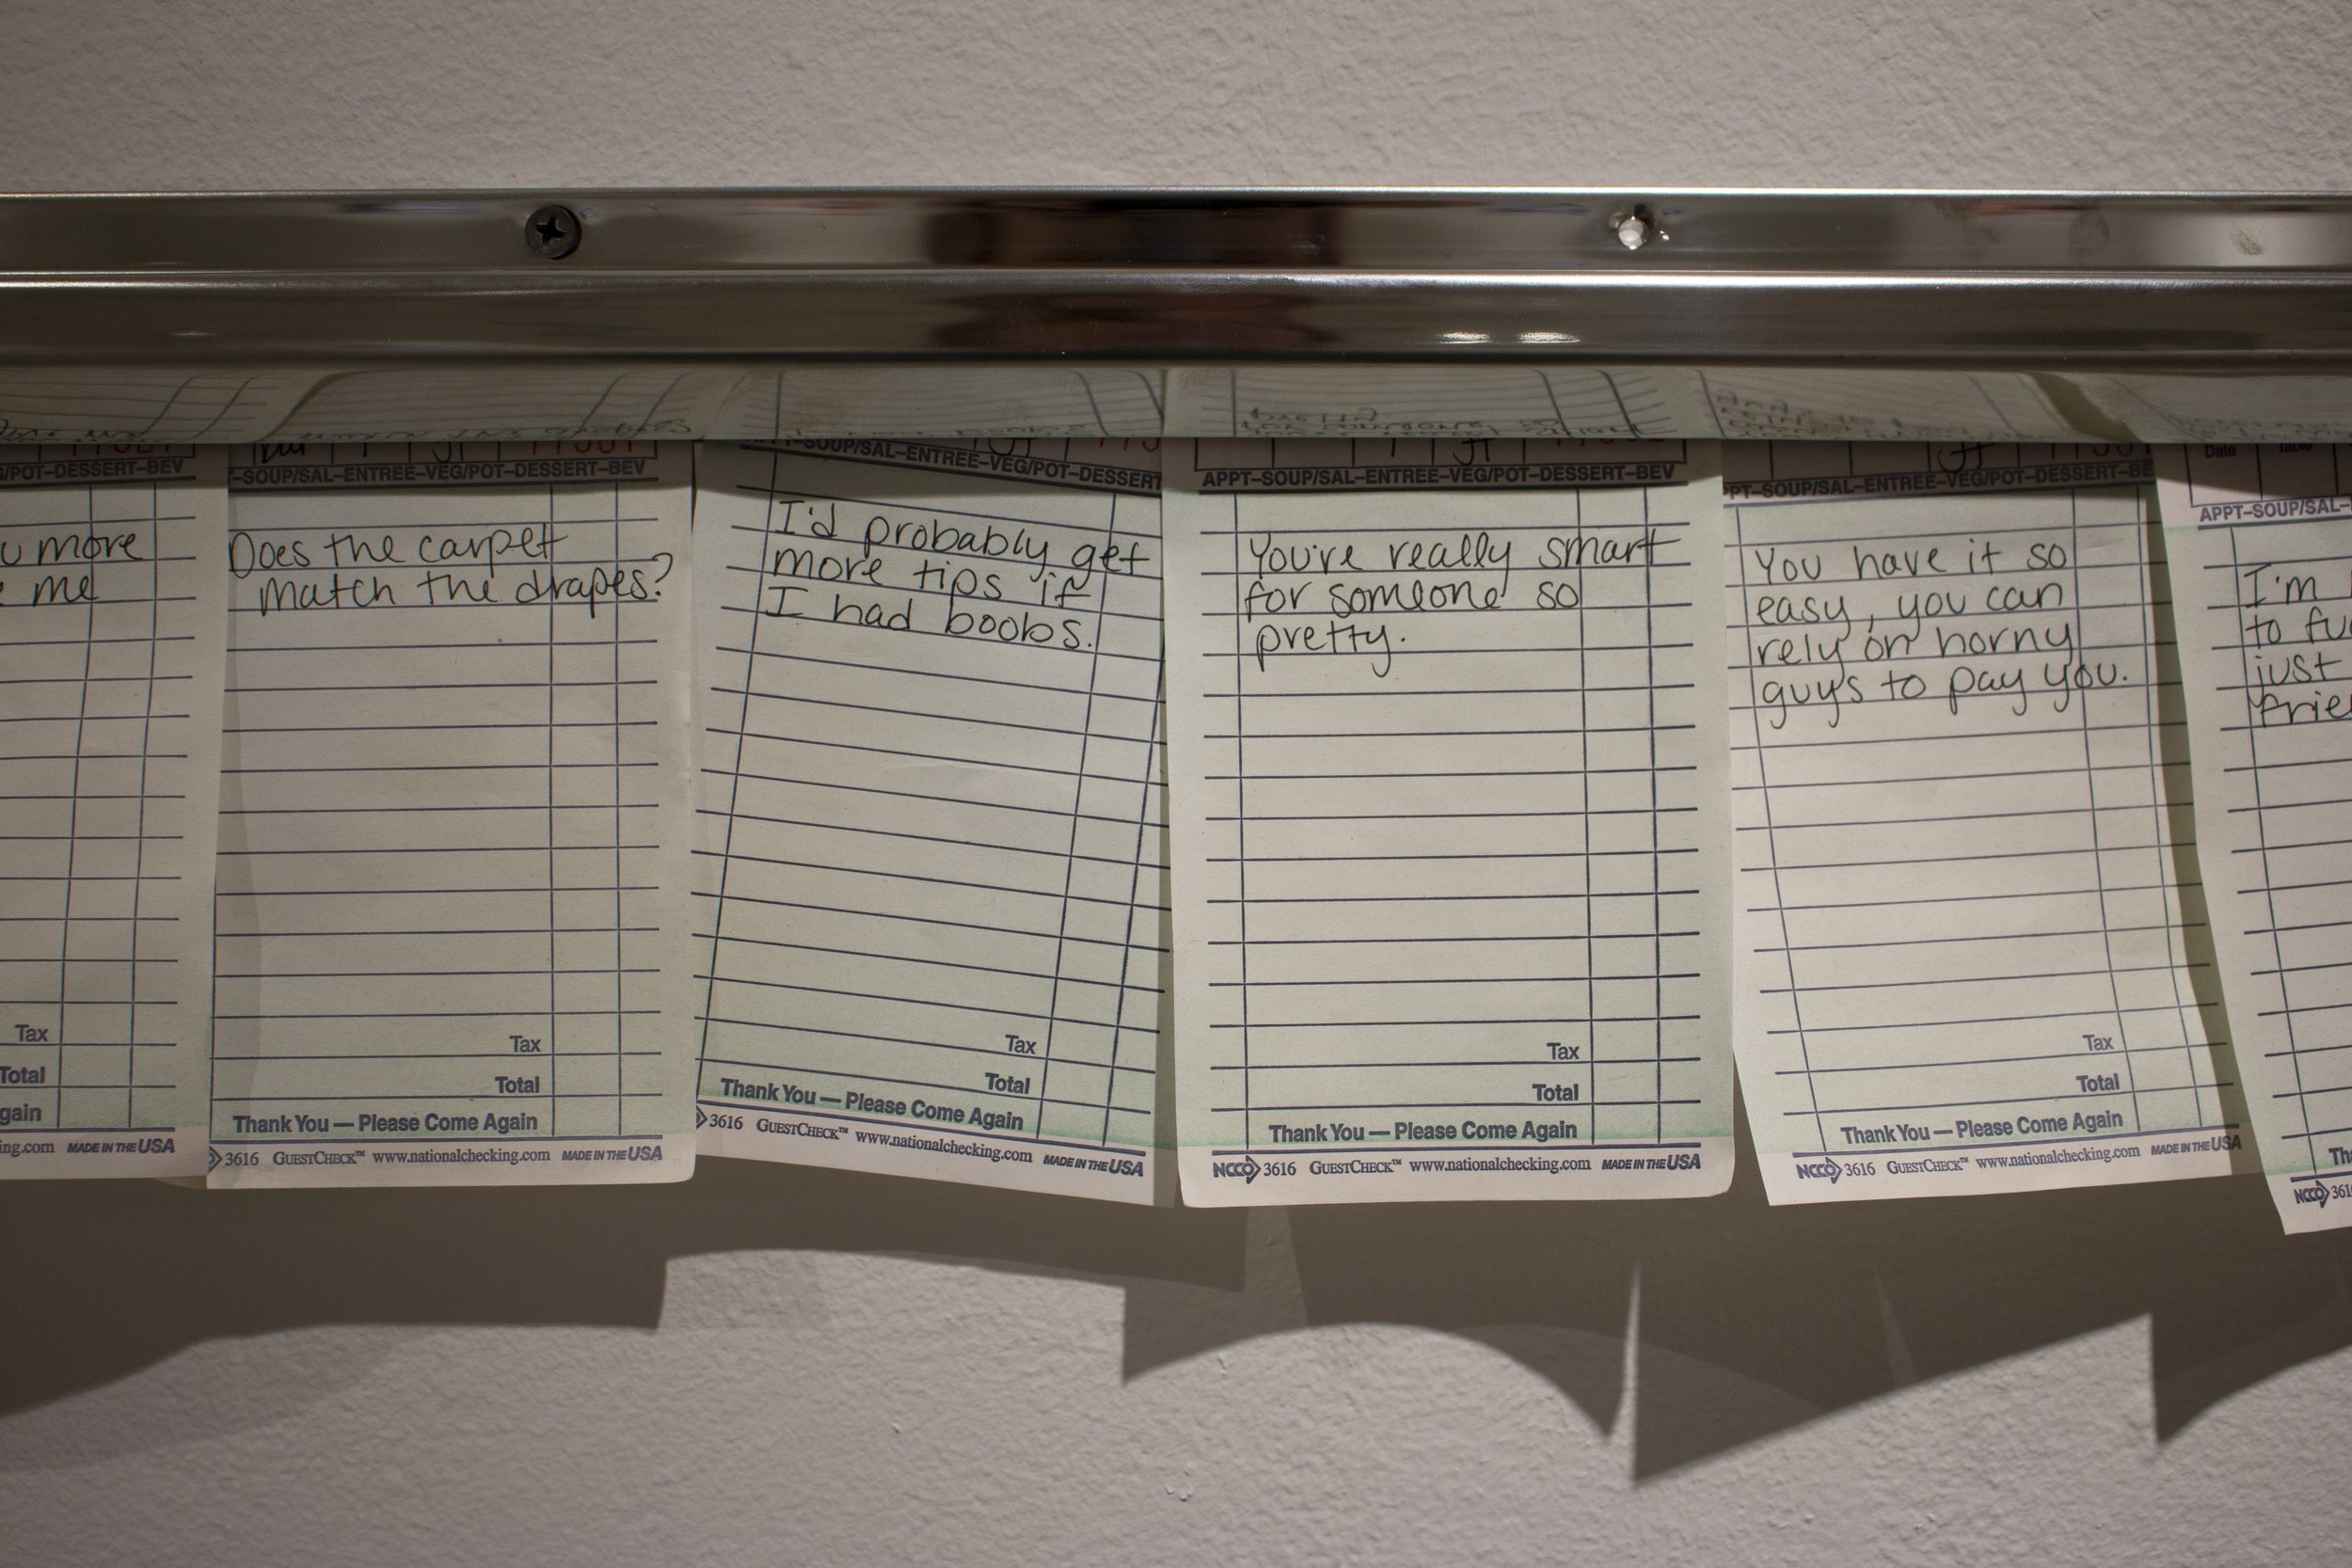 /POT–DESSERT–BEV
more
me
Tax
Total
MADE IN THE USA
–SOUP/SAL–ENTREE–VEG/POT–DESSERT–BEV
Does the carpet
match the drapes?
Tax
Total
Thank You — Please Come Again
3616 GUESTCHECK™ www.nationalchecking.com MADE IN THE USA
–SOUP/SAL–ENTREE–VEG/POT–DESSERT
I'd probably get
more tips if
I had boobs.
Tax
Total
Thank You — Please Come Again
3616 GUESTCHECK™ www.nationalchecking.com MADE IN THE USA
APPT–SOUP/SAL–ENTREE–VEG/POT–DESSERT–BEV
You're really smart
for someone so
pretty.
Tax
Total
Thank You — Please Come Again
NCCO 3616 GUESTCHECK™ www.nationalchecking.com MADE IN THE USA
–SOUP/SAL–ENTREE–VEG/POT–DESSERT–BE
You have it so
easy, you can
rely on horny
guys to pay you.
Tax
Total
Thank You — Please Come Again
NCCO 3616 GUESTCHECK™ www.nationalchecking.com MADE IN THE USA
Date
APPT–SOUP/SAL–
I'm
to
just
NCCO